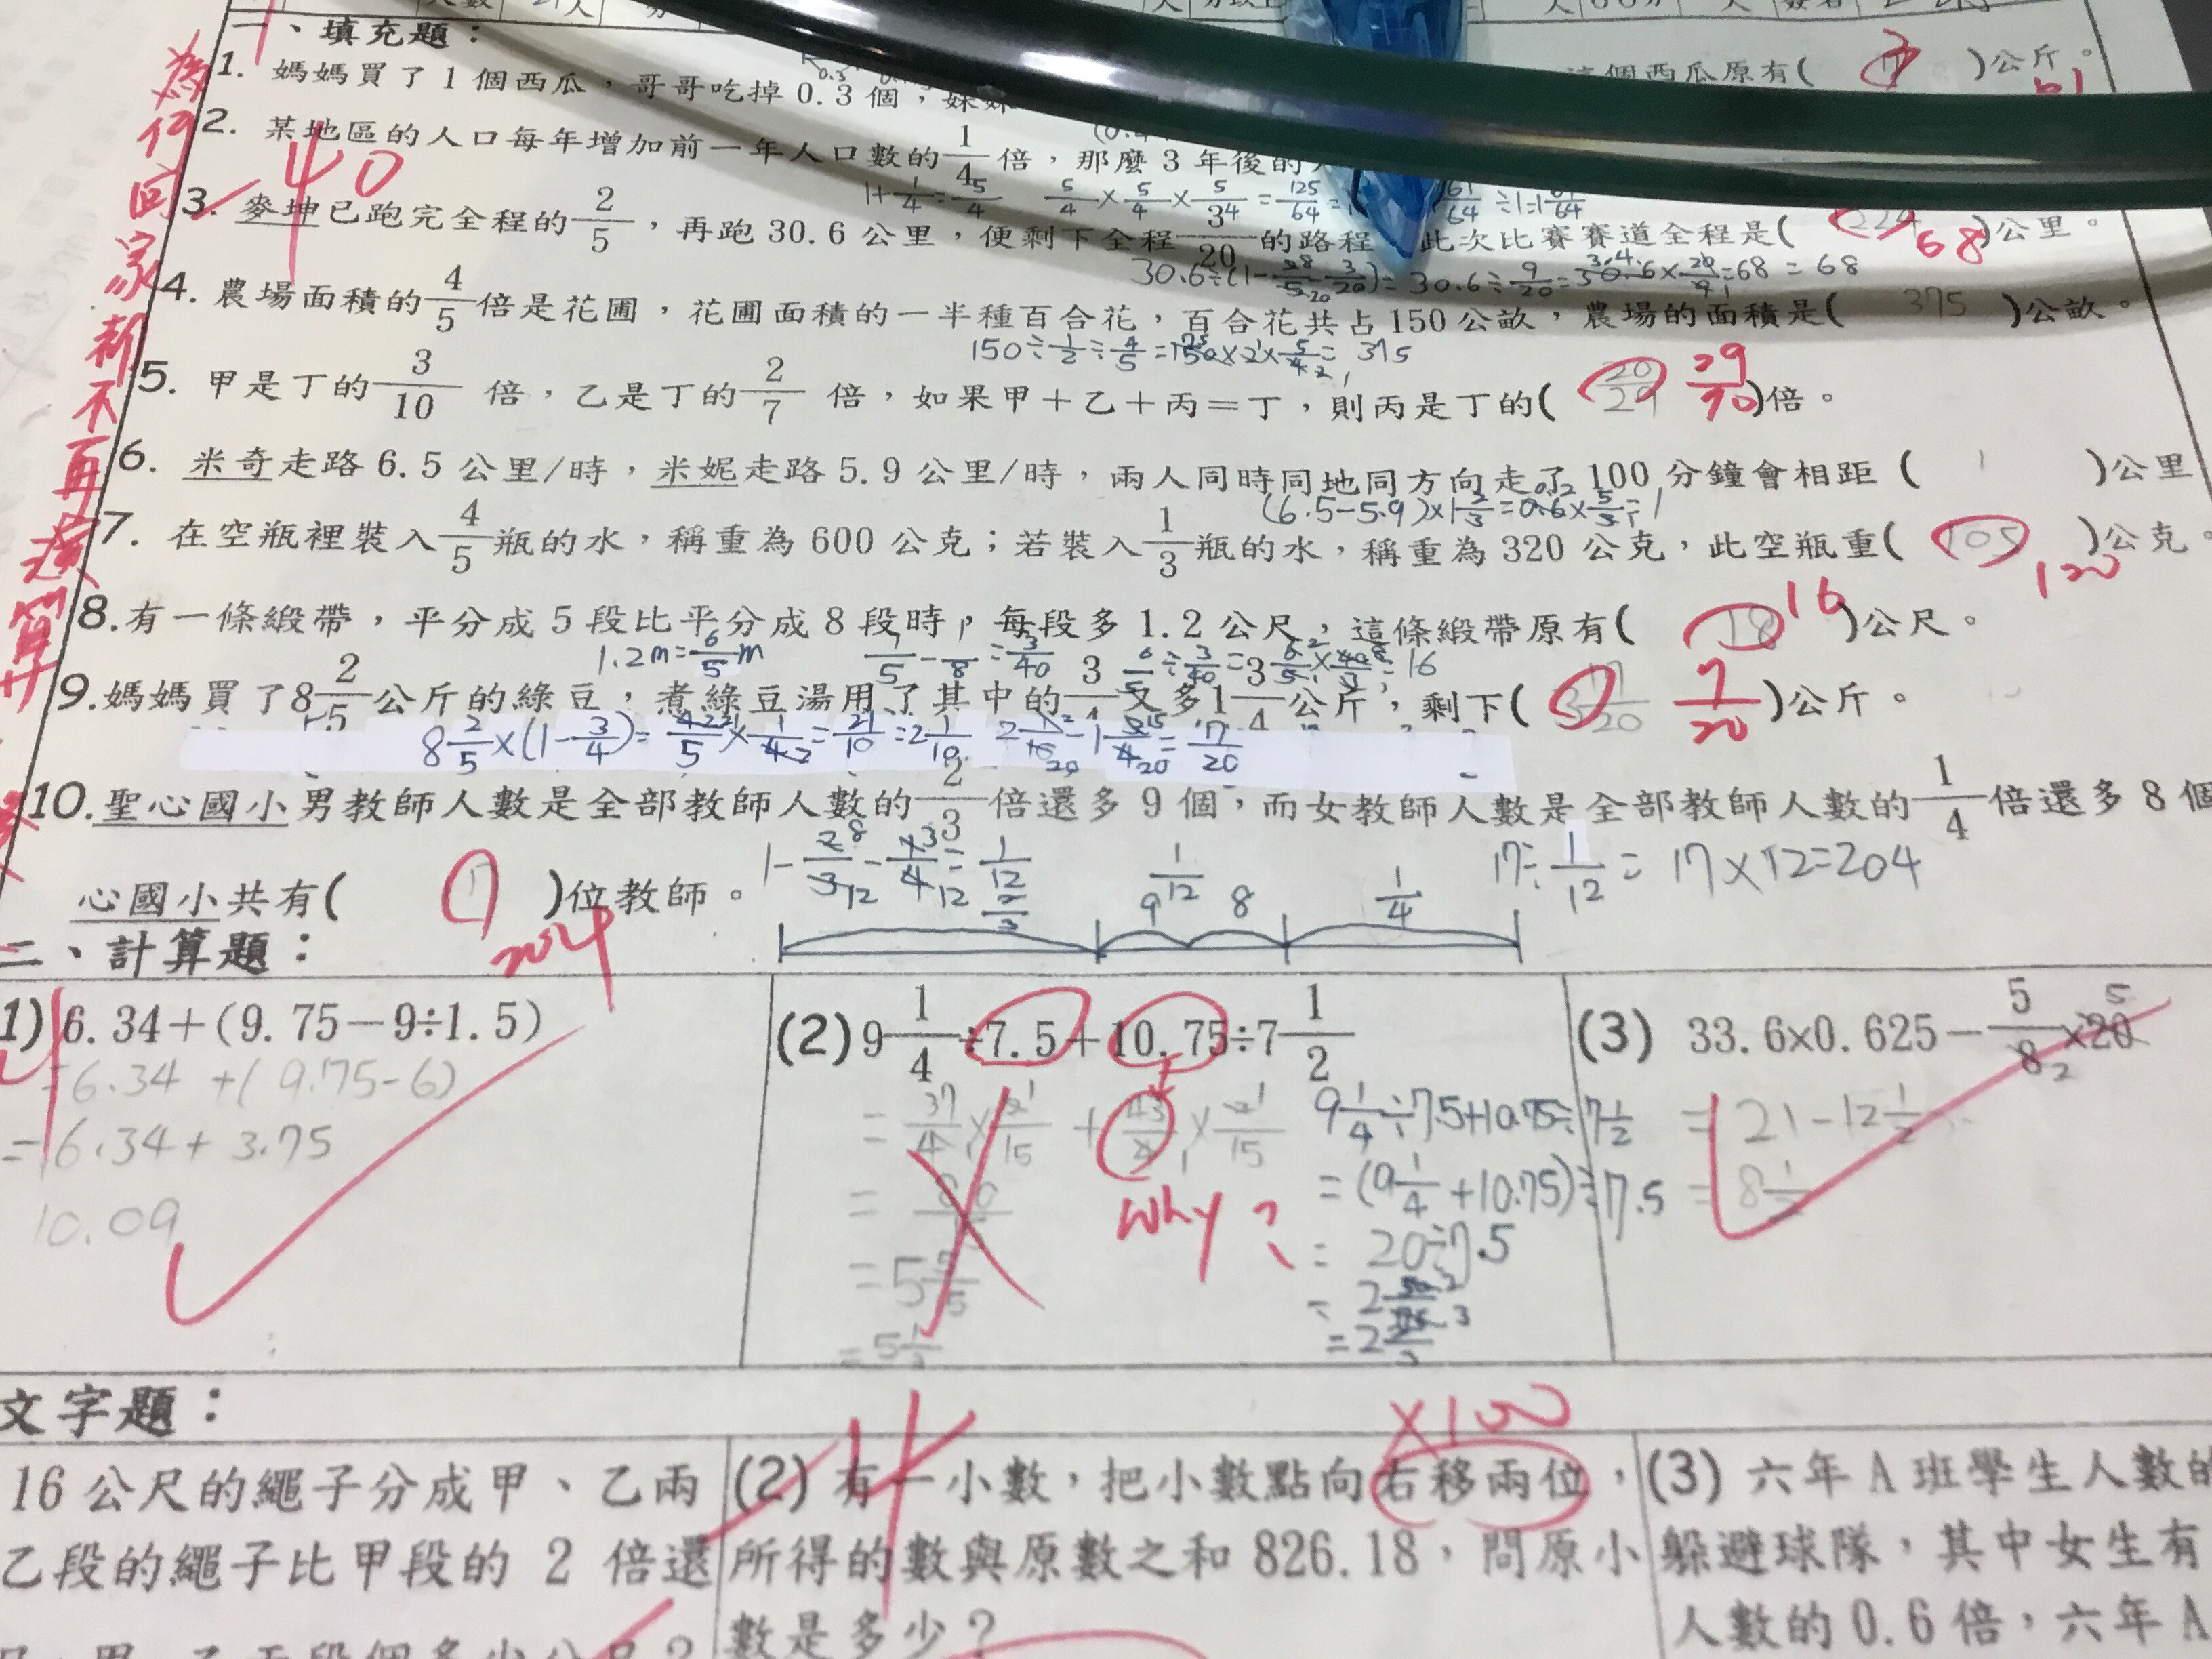 一、填充題：
1. 媽媽買了1個西瓜，哥哥吃掉0.3個，妹妹
這個西瓜原有( )公斤。
2. 某地區的人口每年增加前一年人口數的1/4倍，那麼3年後的
1+1/4=5/4 5/4×5/4×5/4=125/64
3. 麥坤已跑完全程的2/5，再跑30.6公里，便剩下全程3/20的路程 此次比賽賽道全程是( 68)公里。
4. 農場面積的4/5倍是花圃，花圃面積的一半種百合花，百合花共占150公畝，農場的面積是( 375 )公畝。
150÷1/2÷4/5=150×2×5/4=375
5. 甲是丁的3/10倍，乙是丁的2/7倍，如果甲＋乙＋丙＝丁，則丙是丁的( 20/29 29/70)倍。
6. 米奇走路6.5公里/時，米妮走路5.9公里/時，兩人同時同地同方向走了100分鐘會相距( 1 )公里
(6.5-5.9)×1 2/3=0.6×5/3=1
7. 在空瓶裡裝入4/5瓶的水，稱重為600公克；若裝入1/3瓶的水，稱重為320公克，此空瓶重( 105 )公克。
120
8.有一條緞帶，平分成5段比平分成8段時，每段多1.2公尺，這條緞帶原有( 18 16)公尺。
1.2m=6/5m 1/5-1/8=3/40 6/5÷3/40=6/5×40/3=16
9.媽媽買了8 2/5公斤的綠豆，煮綠豆湯用了其中的3/4又多1 1/4公斤，剩下( 7/20)公斤。
8 2/5×(1-3/4)=42/5×1/4=21/10=2 1/10
10.聖心國小男教師人數是全部教師人數的2/3倍還多9個，而女教師人數是全部教師人數的1/4倍還多8個
1-2/3-1/4=1/12 17÷1/12=17×12=204
心國小共有( )位教師。
204
2/3 9 1/12 8 1/4
二、計算題：
1) 6.34＋(9.75－9÷1.5)
=6.34+(9.75-6)
=6.34+3.75
10.09
(2) 9 1/4÷7.5＋10.75÷7 1/2
=37/4×2/15+43/4×2/15
why?
9 1/4÷7.5+10.75÷7 1/2
=(9 1/4+10.75)÷7.5
=20÷7.5
(3) 33.6×0.625－5/8×20
=21-12 1/2
=8 1/2
文字題：
16公尺的繩子分成甲、乙兩
乙段的繩子比甲段的2倍還
×100
(2) 有一小數，把小數點向右移兩位，
所得的數與原數之和826.18，問原小
數是多少？
(3) 六年A班學生人數的
躲避球隊，其中女生有
人數的0.6倍，六年A
為何回家都不再演算
40